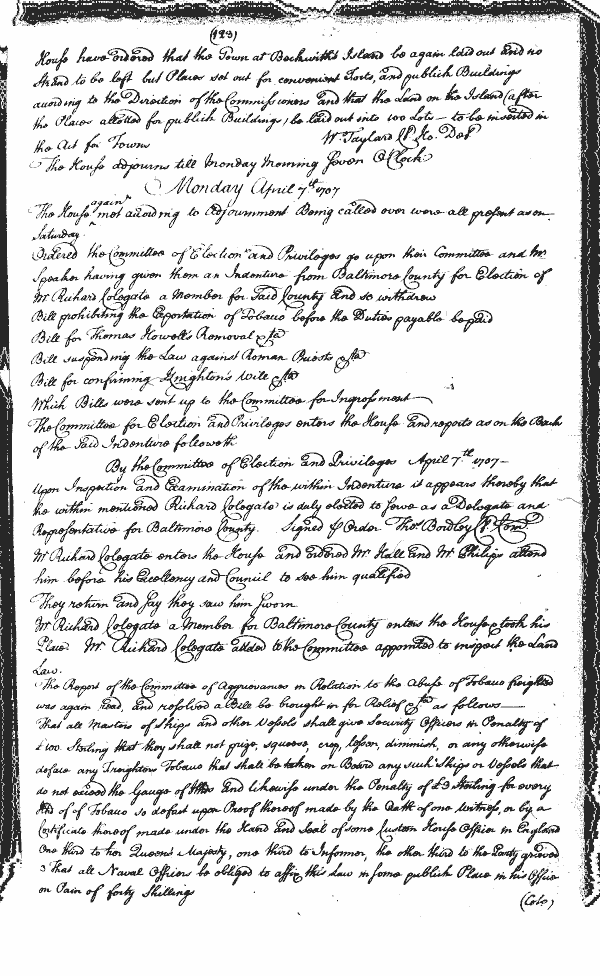 (123)
House have ordered that the Town at Beckwiths Island be again laid out and no
Strand to be left but Places set out for convenient Forts, and publick Buildings
according to the Direction of the Commissioners and that the Land on the Island (after
the Places allotted for publick Buildings) be laid out into 100 Lots — to be inserted in
the Act for Towns
W Taylard Cl Ho. Del
The House adjourns till Monday Morning Seven O Clock
Monday April 7th 1707
The House again met according to Adjournment Being called over were all present as on
Saturday
Ordered the Committee of Elections and Privileges go upon their Committee and Mr
Speaker having given them an Indenture from Baltimore County for Election of
Mr Richard Colegate a Member for Said County and so withdrew
Bill prohibiting the Exportation of Tobacco before the Duties payable be paid
Bill for Thomas Howells Removal &ca
Bill suspending the Law against Roman Priests &ca
Bill for confirming Knightons Will &ca
Which Bills were sent up to the Committee for Ingrossment
The Committee for Election and Privileges enters the House and reports as on the Back
of the Said Indenture followeth
By the Committee of Election and Privileges April 7th 1707
Upon Inspection and Examination of the within Indenture it appears thereby that
the within mentioned Richard Colegate is duly elected to Serve as a Delegate and
Representative for Baltimore County. Signed p Order Thos Bordley Cl Com
Mr Richard Colegate enters the House and ordered Mr Hall and Mr Philips attend
him before his Excellency and Council to see him qualified
They return and Say they saw him Sworn
Mr Richard Colegate a Member for Baltimore County enters the House & took his
Place. Mr Richard Colegate added to the Committee appointed to inspect the Land
Law.
The Report of the Committee of Aggrievances in Relation to the Abuse of Tobacco freighted
was again read, and resolved a Bill be brought in for Relief &ca as follows
That all Masters of Ships and other Vessels shall give Security Officers in Penalty of
£100 Sterling that they shall not prize, squeese, crop, lessen, diminish, or any otherwise
deface any Freighters Tobacco that shall be taken on Board any such Ships or Vessels that
do not exceed the Gauge of Hhds and likewise under the Penalty of £3 sterling for every
Hhd of Tobacco so defact upon Proof thereof made by the Oath of one witness, or by a
Certificate thereof made under the Hand and Seal of some Custom House Officer in England
One third to her Queen's Majesty, one third to Informer, the other third to the Party grieved
3 That all Naval Officers be obliged to affix this Law in some publick Place in his Office
on Pain of forty Shillings
(Colo)